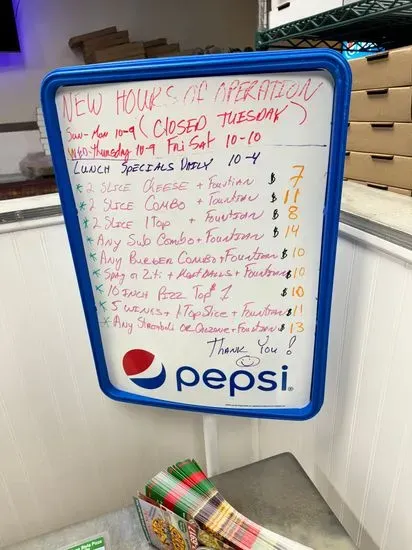 NEW HOURS OF OPERATION
Sun-Mon 10-9 (CLOSED TUESDAY)
WED-Thursday 10-9 Fri Sat 10-10
LUNCH SPECIALS DAILY 10-4
* 2 SLICE CHEESE + Fountian $ 7
* 2 SLICE COMBO + Fountian $ 11
* 2 SLICE 1 TOP + Fountian $ 8
* ANY SUB COMBO + Fountian $ 14
* ANY BURGER COMBO + Fountian $ 10
* SPAG or Ziti + MEATBALLS + Fountian $ 10
* 10 INCH PIZZ TOP 1 $ 10
* 5 WINGS + 1 TOP SLICE + Fountian $ 11
* ANY Stromboli OR CALZONE + Fountian $ 13
THANK YOU!
pepsi